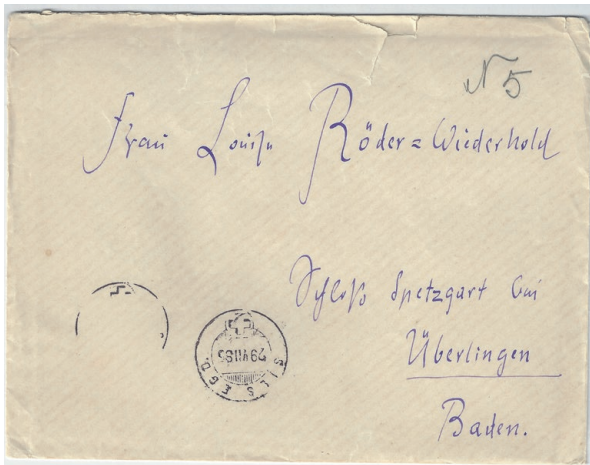 N 5
Frau Louise Röder=Wiederhold
Schloß Spetzgart bei
Überlingen
Baden.
SILS EGD.
29 VII 85